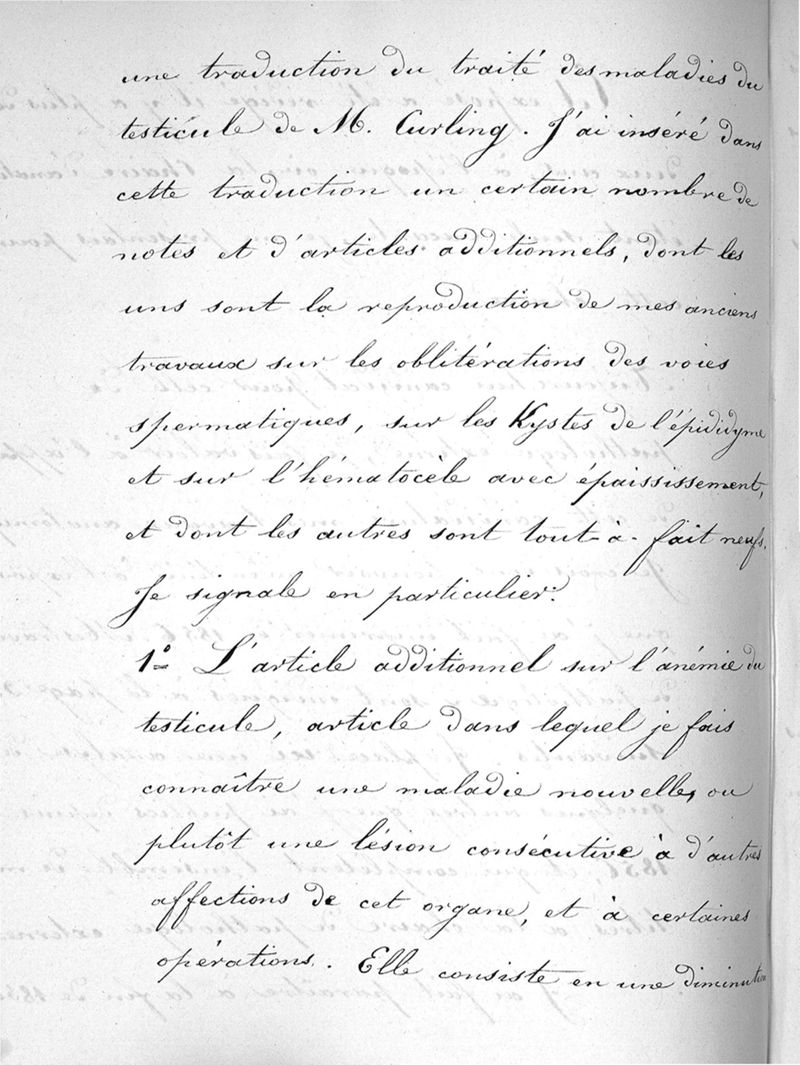 une traduction du traité des maladies du
testicule de M. Curling. J'ai inséré dans
cette traduction un certain nombre de
notes et d'articles additionnels, dont les
uns sont la reproduction de mes anciens
travaux sur les oblitérations des voies
spermatiques, sur les Kystes de l'épididyme
et sur l'hématocèle avec épaississement,
et dont les autres sont tout-à-fait neufs.
Je signale en particulier:
1° L'article additionnel sur l'anémie du
testicule, article dans lequel je fais
connaître une maladie nouvelle, ou
plutôt une lésion consécutive à d'autres
affections de cet organe, et à certaines
opérations. Elle consiste en une diminution